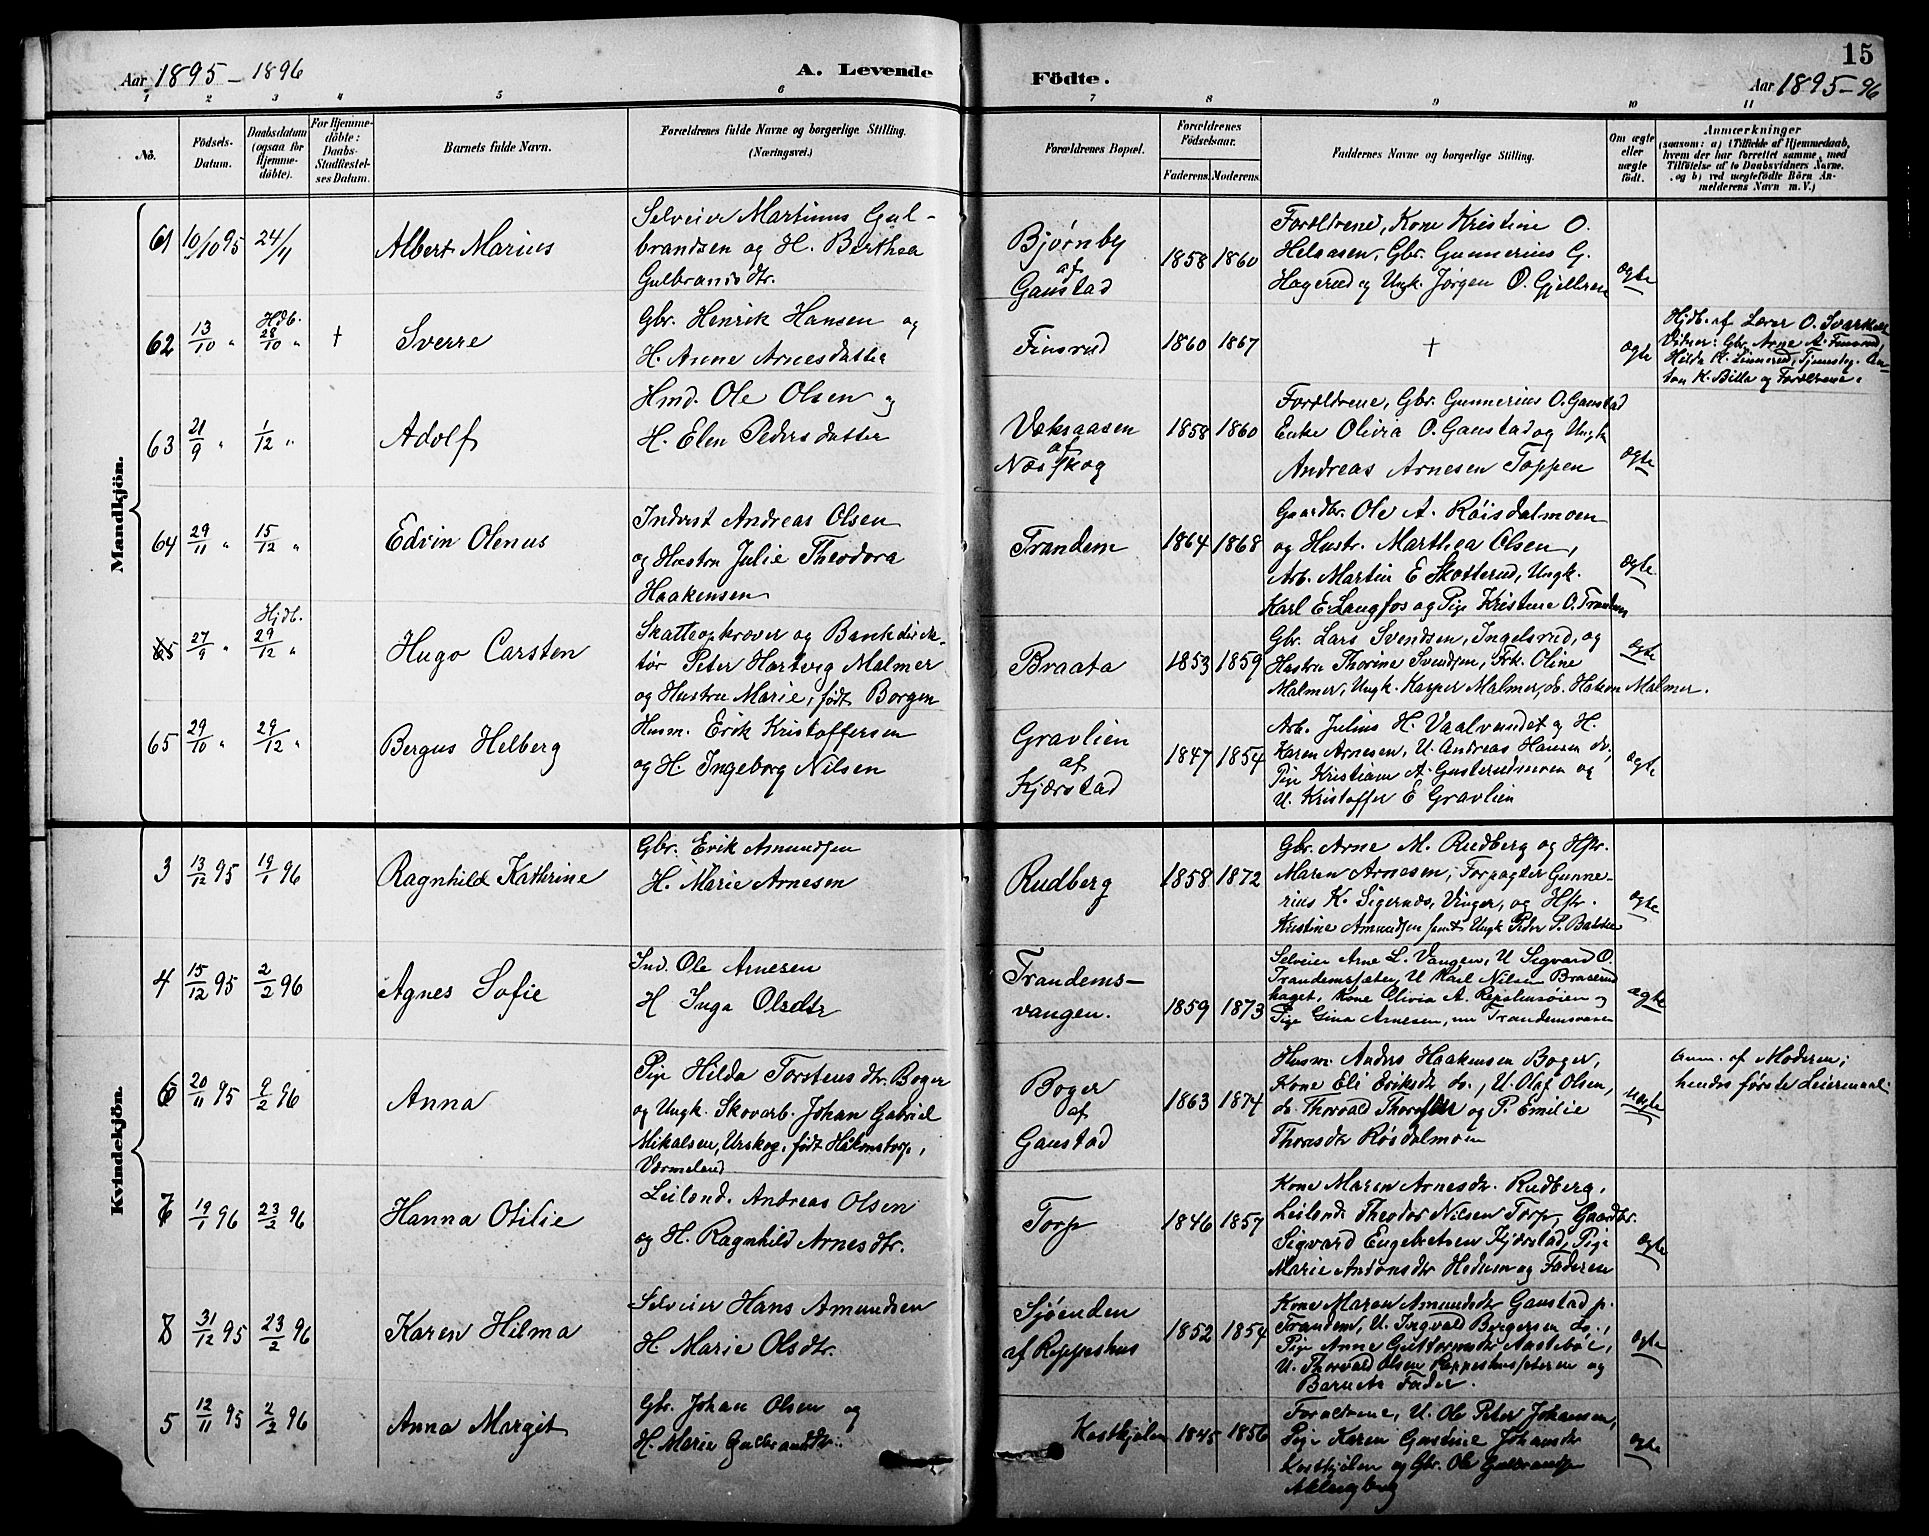 15
Aar 1895-1896
A. Levende
Födte.
Aar 1895-96
1 2 3 4 5 6 7 8 9 10 11
No.
Födsels-
Datum.
Daabsdatum
(ogsaa for
Hjemme-
döbte).
For Hjemme-
döbte:
Daabs-
Stadfæstel-
ses Datum.
Barnets fulde Navn.
Forældrenes fulde Navne og borgerlige Stilling.
(Næringsvei.)
Forældrenes Bopæl.
Forældrenes
Födselsaar.
Faderens. Moderens.
Faddernes Navne og borgerlige Stilling.
Om ægte
eller
uægte
födt.
Anmærkninger
(saasom: a) i Tilfælde af Hjemmedaab,
hvem der har forrettet samme, med
Tilföielse af to Daabsvidners Navne.
og b) ved uægtefödte Börn An-
melderens Navn m. V.)
Mandkjön.
61 10/10 95 24/11
Albert Marius
Selveier Martinus Gul-
brandsen og H. Berthea
Gulbrandsdtr.
Bjørnby
af
Gaustad
1858 1860
Forældrene, Kone Kristine O.
Helaasen, Gbr. Gunnerius G.
Hagerud og Ungk. Jørgen O. Gjellren
ægte
62 13/10 " Hdb. 28/10 " +
Sverre
Gbr. Henrik Hansen og
H. Anne Arnesdatter
Finsrud
1860 1867
+
ægte
Hjdb. af Lærer O. Svarkel
Vidner: Gbr. Arne A. Finsrud,
Hilda K. Linnerud, Tjenestog. An-
ton K. Billa og Forældrene.
63 21/9 " 1/12 "
Adolf
Hmd. Ole Olsen og
H. Elen Pedersdatter
Væksaasen
af
Næsskog
1858 1860
Forældrene, Gbr. Gunnerius O. Gaustad
Enke Olivia O. Gaustad og Ungk
Andreas Arnesen Toppen
ægte
64 29/11 " 15/12 "
Edvin Olenus
Inderst Andreas Olsen
og Hustru Julie Theodora
Haakensen
Trandem
1864 1868
Gaardbr. Ole A. Røisdalmoen
og Hustr. Marthea Olsen,
Arb. Martin E Skotterud, Ungk.
Karl E. Langfos og Pige Kristine O. Trandem
ægte
65 27/9 " Hjdb. 29/12 "
Hugo Carsten
Skatteopkræver og Bankdirek-
tør Peter Hartvig Malmer
og Hustru Marie, født Borgen
Braata
1853 1859
Gbr. Lars Svendsen, Ingelsrud, og
Hustru Thorine Svendsen, Frk. Oline
Malmer, Ungk. Kasper Malmer, do. Hakon Malmer.
ægte
65 29/10 " 29/12 "
Bergus Helberg
Husm. Erik Kristoffersen
og H. Ingeborg Nilsen
Gravlien
af
Kjærstad
1847 1854
Arb. Julius H. Vaalvandet og H.
Karen Arnesen, U. Andreas Hansen do,
Pige Kristiane A. Gusterudmoen og
U. Kristoffer E Gravlien
ægte
Kvindekjön.
3 13/12 95 19/1 96
Ragnhild Kathrine
Gbr. Erik Amundsen
H. Marie Arnesen
Rudberg
1858 1872
Gbr. Arne M. Rudberg og Hstr.
Maren Arnesen; Forpagter Gunne-
rius K. Sigernæs, Vinger, og Hstr.
Kristine Amundsen samt Ungk Peder P.
ægte
4 15/12 95 2/2 96
Agnes Sofie
Ind. Ole Arnesen
H Inga Olsdtr
Trandems-
vangen.
1859 1873
Selveier Arne L. Vangen, U Sigvard O.
Trandemsæter, U Karl Nilsen Braserud
haget, Kone Olivia A. og
Pige Gina Arnesen,
ægte
6 20/11 95 9/2 96
Anna
Pige Hilda Torstensdtr. Boger
og Ungk. Skovarb. Johan Gabriel
Mikalsen, Urskog, født Håkonstorp,
Värmeland
Boger
af
Gaustad
1863 1874
Husm. Anders Haakensen Boger,
Kone Eli Eriksdtr do., U. Olaf Olsen,
do. Thorvad og P. Emilie
Thoresdtr Røisdalmoen
uægte
Anm. af Moderen;
hendes første Leiermaal
7 19/1 96 23/2 96
Hanna Otilie
Leilænd. Andreas Olsen
og H. Ragnhild Arnesdtr.
Torp
1846 1857
Kone Maren Arnesdtr. Rudberg,
Leilænd. Theodor Nilsen Torp, Gaardbr.
Sigvard Engebretsen Kjærstad, Pige
Marie Antonsdtr Hedum og Faderen
ægte
8 31/12 95 23/2 96
Karen Hilma
Selveier Hans Amundsen
H. Marie Olsdtr.
Sjøenden
af Reppeshus
1852 1854
Kone Maren Amundsdtr Gaustad p.
Trandem, U. Ingvald Bergersen do.,
Pige Anne Guttormsdtr Aastebøl,
U. Thorvald Olsen Reppeshussæteren og
Barnets Fader.
ægte
5 12/11 95 2/2 96
Anna Margit
Gbr. Johan Olsen og
H. Marie Gulbrandsdtr.
Kostkjølen
1845 1856
Forældrene, U. Ole Peter Johansen,
Pige Karen Gustine Johansdtr
Kostkjølen og Gbr. Ole Gulbrandsen
ægte